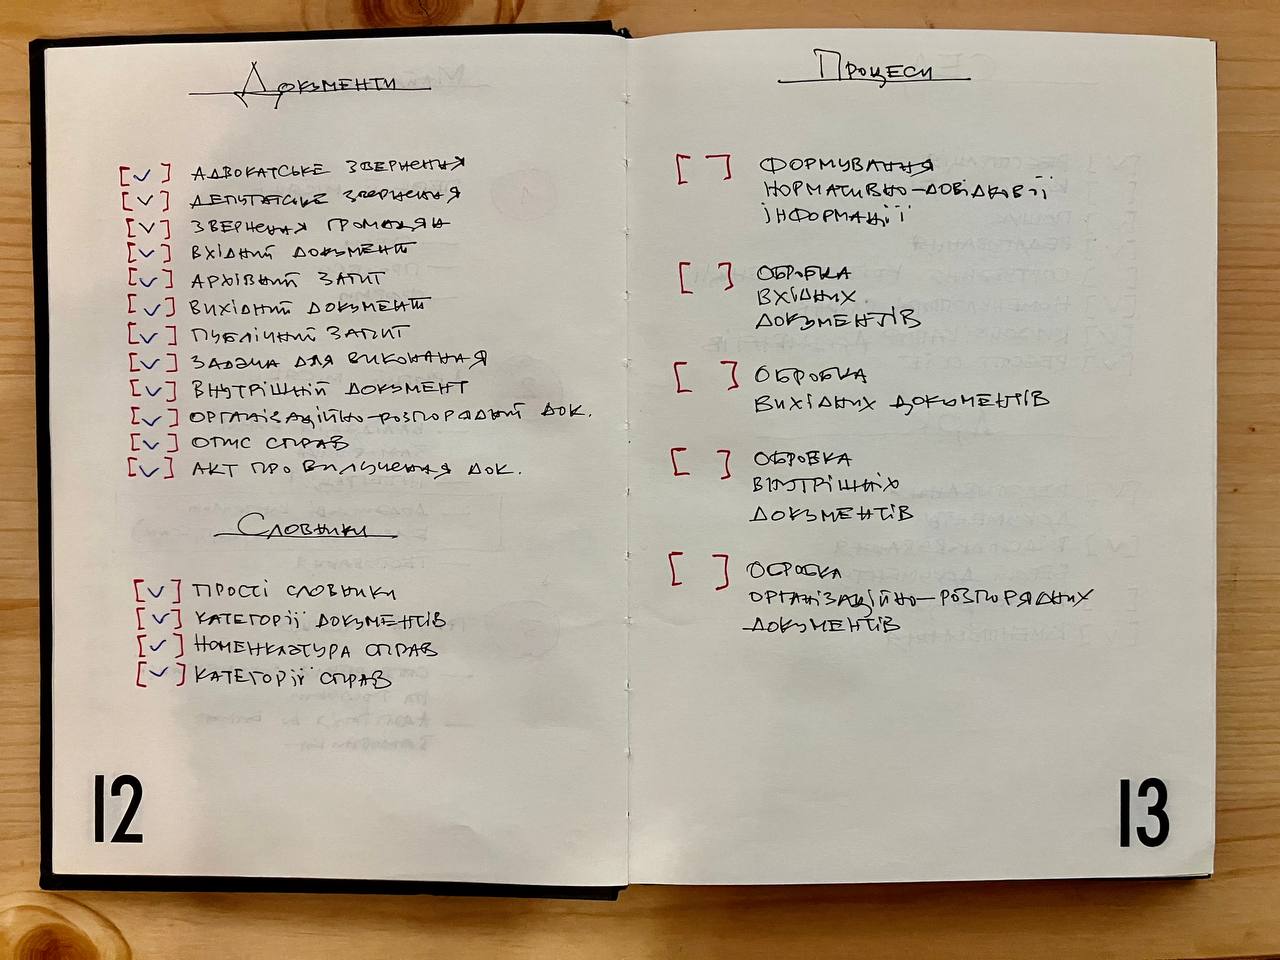 Документи
[✓] Адвокатське звернення
[✓] Депутатське звернення
[✓] Звернення громадян
[✓] Вхідний документ
[✓] Архівний запит
[✓] Вихідний документ
[✓] Публічний запит
[✓] Задача для виконання
[✓] Внутрішній документ
[✓] Організаційно-розпорядний док.
[✓] Опис справ
[✓] Акт про вилучення док.
Словники
[✓] Прості словники
[✓] Категорії документів
[✓] Номенклатура справ
[✓] Категорії справ
12
Процеси
[ ] Формування
нормативно-довідкової
інформації
[ ] Обробка
вхідних
документів
[ ] Обробка
вихідних документів
[ ] Обробка
внутрішніх
документів
[ ] Обробка
організаційно-розпорядних
документів
13